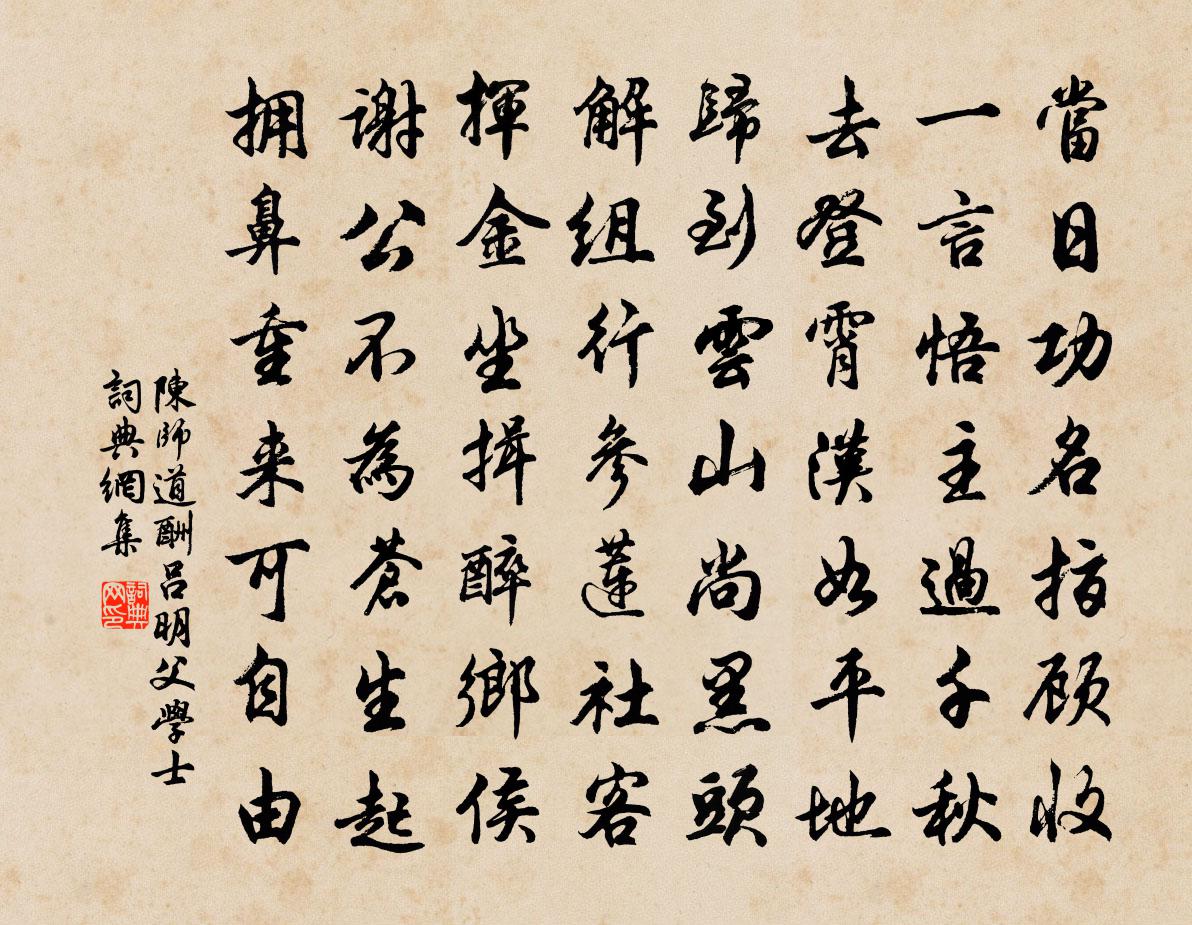 當日功名指顧收
一言悟主過千秋
去登霄漢如平地
歸到雲山尚黑頭
解組行參蓮社客
揮金坐揖醉鄉侯
謝公不為蒼生起
拥鼻重来可自由
陳師道酬呂明父學士
詞典網集
詞典网印